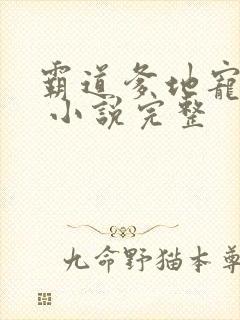 霸道爹地宠
小說完整
九命野猫本尊